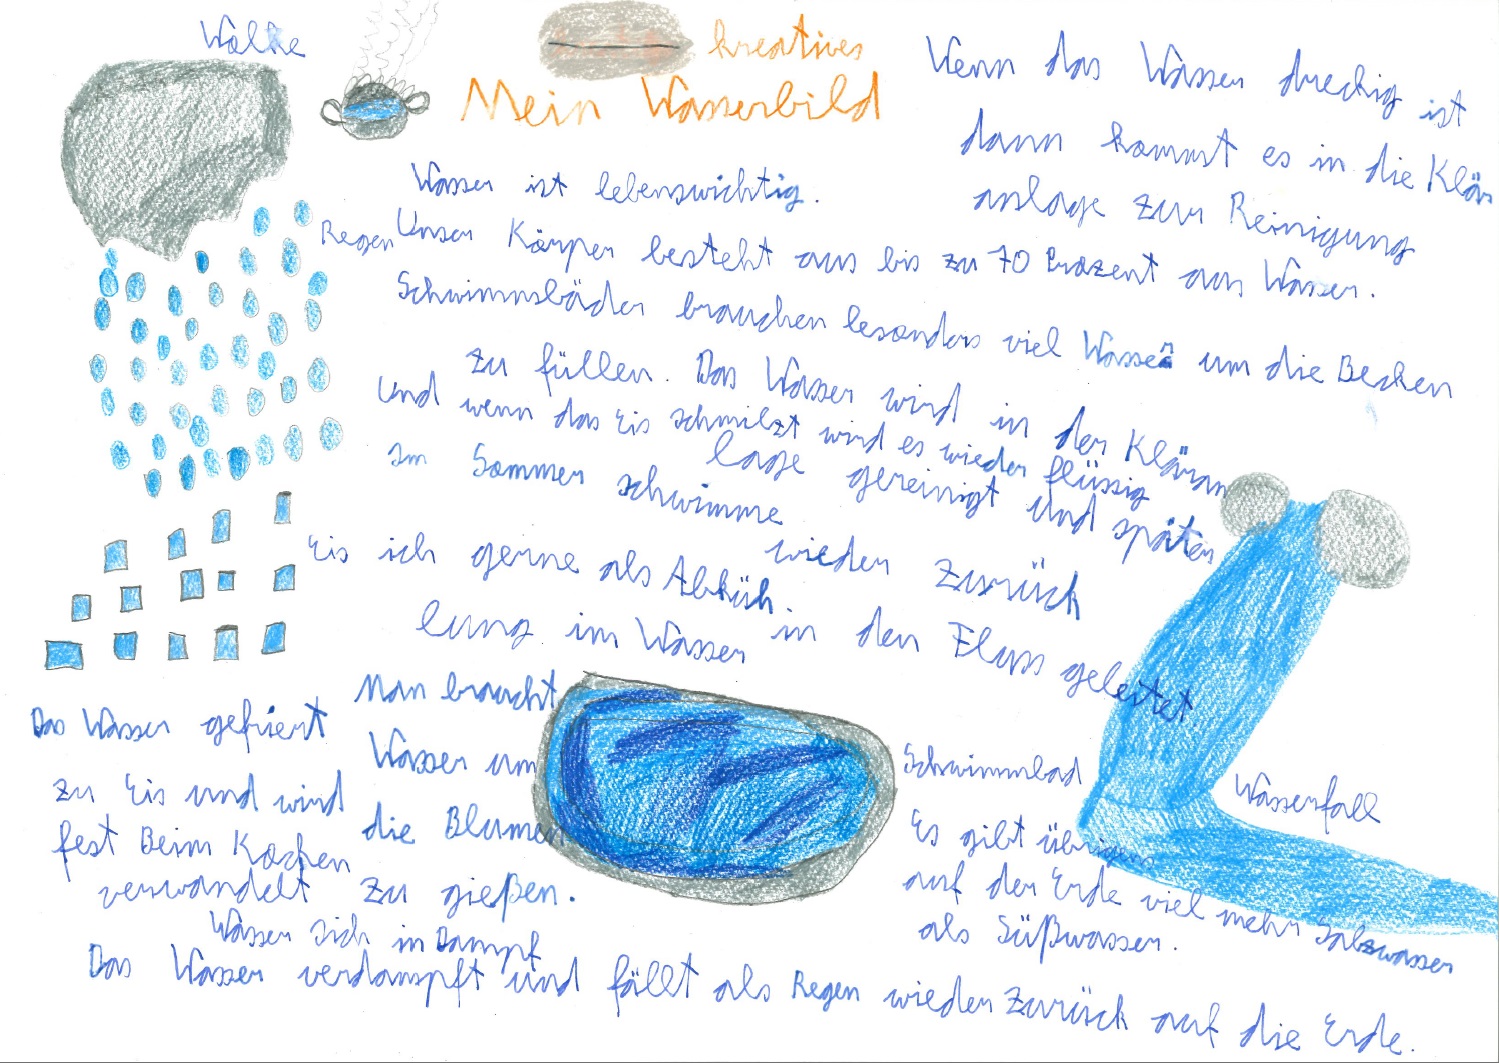 Wolke
kreatives
Mein Wasserbild
Wenn das Wasser dreckig ist
dann kommt es in die Klär
anlage zur Reinigung
Wasser ist lebenswichtig.
Regen
Unser Körper besteht aus bis zu 70 Prozent aus Wasser.
Schwimmbäder brauchen besonders viel Wasser um die Becken
zu füllen. Das Wasser wird in der Kläran
lage gereinigt und später
wieder zurück
in den Fluss geleitet
Und wenn das Eis schmilzt wird es wieder flüssig
Im Sommer schwimme
ich gerne als Abküh
lung im Wasser
Eis
Man braucht
Wasser um
die Blumen
zu gießen.
Das Wasser gefriert
zu Eis und wird
fest Beim Kochen
verwandelt
Wasser sich in Dampf
Schwimmbad
Wasserfall
Es gibt übrigens
auf der Erde viel mehr Salzwasser
als Süßwasser.
Das Wasser verdampft und fällt als Regen wieder zurück auf die Erde.